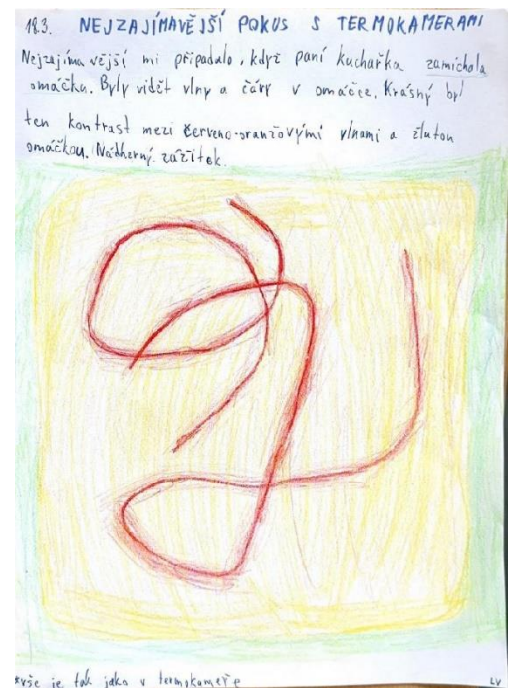 18.3. NEJZAJÍMAVĚJŠÍ POKUS S TERMOKAMERAMI
Nejzajímavější mi připadalo, když paní kuchařka zamíchala
omáčku. Byly vidět vlny a čáry v omáčce. Krásný byl
ten kontrast mezi červeno-oranžovými vlnami a žlutou
omáčkou. Nádherný zážitek.
*vše je tak jako v termokameře
LV